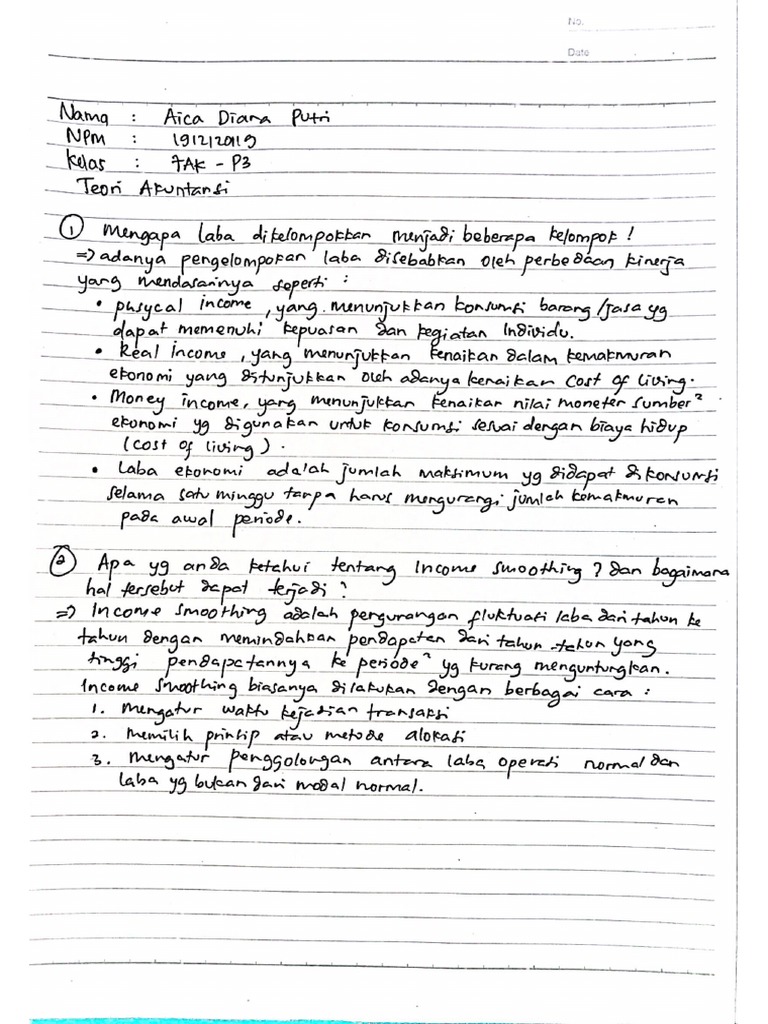 No.
Date
Nama : Aica Diana Putri
NPM : 191212019
Kelas : 7AK - P3
Teori Akuntansi
① Mengapa laba dikelompokkan menjadi beberapa kelompok !
=> adanya pengelompokan laba disebabkan oleh perbedaan kinerja
yang mendasarinya seperti :
• phsycal income, yang menunjukkan konsumsi barang/jasa yg
dapat memenuhi kepuasan dan kegiatan Individu.
• Real Income, yang menunjukkan kenaikan dalam kemakmuran
ekonomi yang ditunjukkan oleh adanya kenaikan cost of living.
• Money income, yang menunjukkan kenaikan nilai moneter sumber²
ekonomi yg digunakan untuk konsumsi sesuai dengan biaya hidup
(cost of living).
• Laba ekonomi adalah jumlah maksimum yg didapat dikonsumsi
selama satu minggu tanpa harus mengurangi jumlah kemakmuran
pada awal periode.
② Apa yg anda ketahui tentang Income smoothing ? dan bagaimana
hal tersebut dapat terjadi ?
=> Income smoothing adalah pengurangan fluktuasi laba dari tahun ke
tahun dengan memindahkan pendapatan dari tahun-tahun yang
tinggi pendapatannya ke periode² yg kurang menguntungkan.
Income smoothing biasanya dilakukan dengan berbagai cara :
1. Mengatur waktu kejadian transaksi
2. Memilih prinsip atau metode alokasi
3. Mengatur penggolongan antara laba operasi normal dan
laba yg bukan dari modal normal.